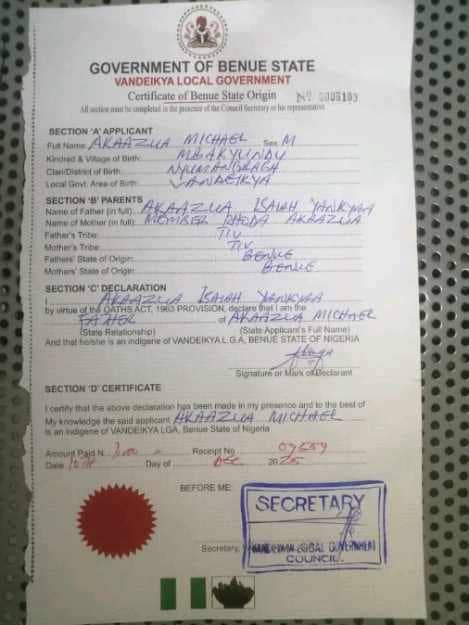 GOVERNMENT OF BENUE STATE
VANDEIKYA LOCAL GOVERNMENT
Certificate of Benue State Origin Nº 0008103
All section must be completed in the presence of the Council Secretary or his representative
SECTION 'A' APPLICANT
Full Name: AKAAZUA MICHAEL Sex M
Kindred & Village of Birth: MBAKYUNDU
Clan/District of Birth:
Local Govt. Area of Birth: VANDEIKYA
SECTION 'B' PARENTS
Name of Father (in full): AKAAZUA ISAIAH YANKYAA
Name of Mother (in full): MEMBER RHODA AKAAZUA
Father's Tribe: TIV
Mother's Tribe: TIV
Fathers' State of Origin: BENUE
Mothers' State of Origin: BENUE
SECTION 'C' DECLARATION
I AKAAZUA ISAIAH YANKYAA
by virtue of the OATHS ACT, 1963 PROVISION, declare that I am the
FATHER of AKAAZUA MICHAEL
(State Relationship) (State Applicant's Full Name)
And that he/she is an indigene of VANDEIKYA L.G.A, BENUE STATE OF NIGERIA
Signature or Mark of Declarant
SECTION 'D' CERTIFICATE
I certify that the above declaration has been made in my presence and to the best of
My knowledge the said applicant AKAAZUA MICHAEL
is an indigene of VANDEIKYA LGA, Benue State of Nigeria
Amount Paid N Receipt No 07659
Date 10th Day of DEC 2025
BEFORE ME:
SECRETARY
Secretary,
VANDEIKYA LOCAL GOVERNMENT
COUNCIL